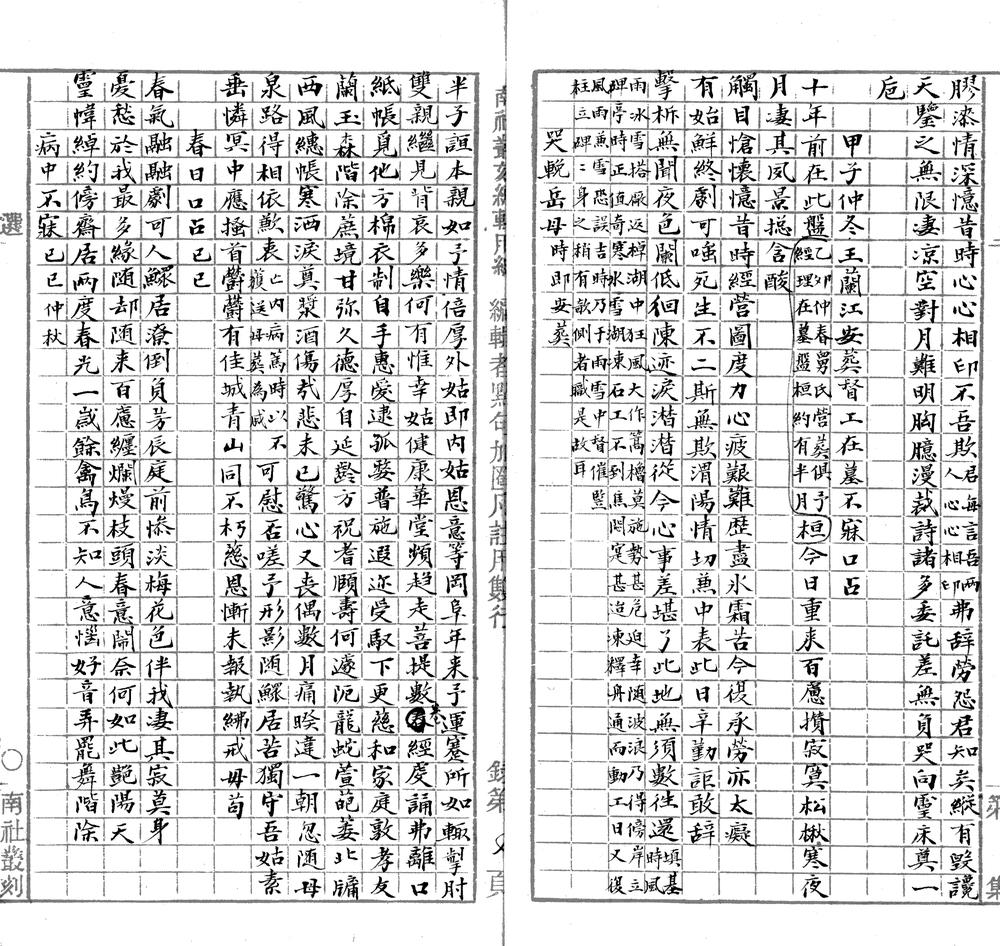 膠漆情深憶昔時心心相印不吾欺人君每言吾兩心心相印弗辞勞怨君知矣縱有毀讒
天鑒之無限凄凉空對月難明胸臆漫裁詩諸多委託差無負哭向靈床奠一
卮
甲子仲冬王蘭江安葬督工在墓不寐口占
十年前在此盤乙卯仲春舅氏營葬俱予經理在墓盤桓約有半月桓今日重來百慮攢寂寞松楸寒夜
月凄其風景摠含酸
觸目愴懷憶昔時經營圖度力心疲艱難歷盡氷霜苦今復永勞亦太癡
有始鮮終劇可嗤死生不二斯無欺渭陽情切兼中表此日辛勤詎敢辞
擊柝無聞夜色闌低徊陳迹淚潸潸從今心事差堪了此地無須數往還填基時風
雨冰雪搭廠返棹湖中狂風大作篙櫓莫施勢甚危迫幸随波浪乃得傍岸立
碑亭時正值奇寒水雪湖東石工不到焦悶寔甚甚迨凍釋舟通而動工日又復
風雨兼雪恐誤吉時乃于雨雪中督催豎
柱立碑二身之稍有欹側者職是故耳
哭輓岳母時即安葬
半子誼本親如予情倍厚外姑即内姑恩意等岡阜年来予運蹇所如輒掣肘
雙親繼見背哀多樂何有惟幸姑健康華堂頻趋走菩提數卷經虔誦弗離口
紙帳覓他方棉衣制自手惠愛逮孤嫠普施遐迩受馭下更慈和家庭敦孝友
蘭玉森階除蔗境甘弥久德厚自延齡方祝耆頤壽何遽阨龍蛇萱葩萎北牖
西風繐帳寒洒淚真漿酒傷哉悲未已驚心又喪偶數月痛暌違一朝忽随母
泉路得相依歉衷亡内病篤時以不獲送母葬為慽不可慰否嗟予形影随鰥居苦獨守吾姑素
垂憐冥中應搔首鬱鬱有佳城青山同不朽慈恩慚未報執紼戒毋苟
春日口占己巳
春氣融融劇可人鰥居潦倒負芳辰庭前慘淡梅花色伴我凄其寂莫身
憂愁於我最多緣随却随来百慮纏爛熳枝頭春意鬧奈何如此艷陽天
靈幃綽約傍齋居兩度春光一歲餘禽鳥不知人意惱好音弄罷舞階除
病中不寐己巳仲秋
選
南社叢刻